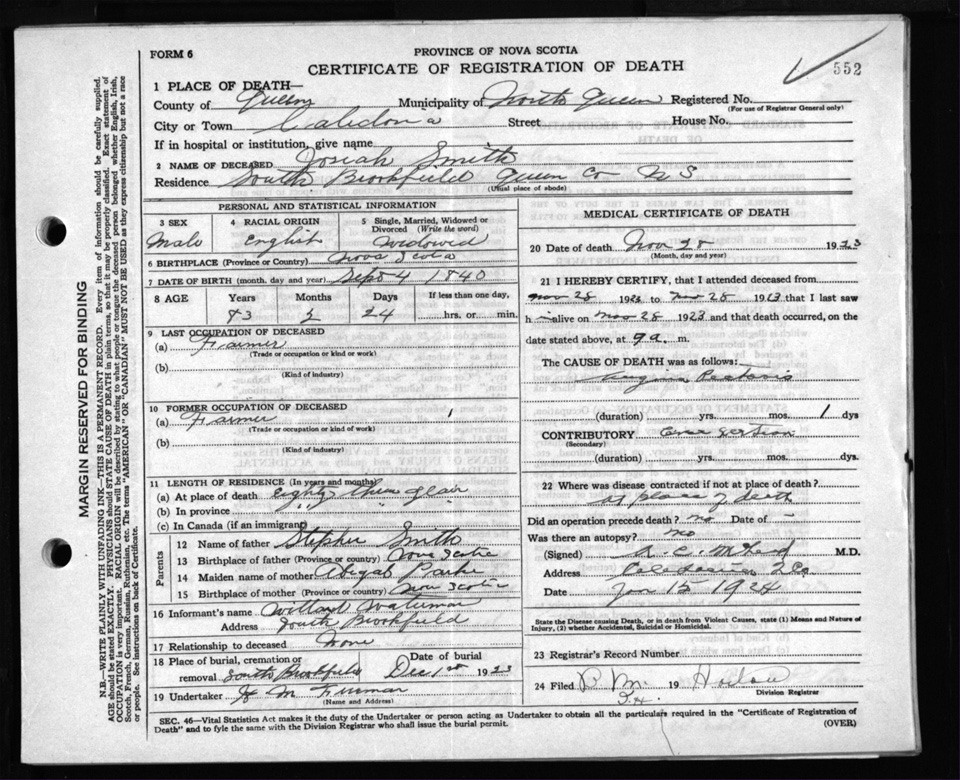 FORM 6
PROVINCE OF NOVA SCOTIA
CERTIFICATE OF REGISTRATION OF DEATH
552
1 PLACE OF DEATH—
County of Queens Municipality of North Queen Registered No.
(For use of Registrar General only)
City or Town Caledonia Street House No.
If in hospital or institution, give name
2 NAME OF DECEASED Josiah Smith
Residence South Brookfield Queen Co N S
(Usual place of abode)
PERSONAL AND STATISTICAL INFORMATION
3 SEX
Male
4 RACIAL ORIGIN
English
5 Single, Married, Widowed or Divorced (Write the word)
Widowed
6 BIRTHPLACE (Province or Country) Nova Scotia
7 DATE OF BIRTH (month, day and year) Sept 4 1840
8 AGE Years Months Days If less than one day,
83 24 hrs. or min.
9 LAST OCCUPATION OF DECEASED
(a) Farmer
(Trade or occupation or kind or work)
(b)
(Kind of industry)
10 FORMER OCCUPATION OF DECEASED
(a) Farmer
(Trade or occupation or kind of work)
(b)
(Kind of industry)
11 LENGTH OF RESIDENCE (In years and months)
(a) At place of death eighty three
(b) In province " "
(c) In Canada (if an immigrant)
Parents
12 Name of father Stephen Smith
13 Birthplace of father (Province or country) Nova Scotia
14 Maiden name of mother Abigal Parker
15 Birthplace of mother (Province or country) Nova Scotia
16 Informant's name Willard Waterman
Address South Brookfield
17 Relationship to deceased None
18 Place of burial, cremation or removal South Brookfield Date of burial Dec 1st 1923
19 Undertaker H M
(Name and Address)
MEDICAL CERTIFICATE OF DEATH
20 Date of death Nov 28 1923
(Month, day and year)
21 I HEREBY CERTIFY, that I attended deceased from
Nov 28 1923 to Nov 28 1923 that I last saw
h im alive on Nov 28 1923 and that death occurred, on the
date stated above, at 9 a. m.
The CAUSE OF DEATH was as follows:
Angina Pectoris
(duration) yrs. mos. 1 dys
CONTRIBUTORY Over exertion
(Secondary)
(duration) yrs. mos. dys.
22 Where was disease contracted if not at place of death?
At place of death
Did an operation precede death? no Date of –
Was there an autopsy? no
(Signed) M.D.
Address Caledonia Q Co
Date Jan 15 1924
State the Disease causing Death, or in death from Violent Causes, state (1) Means and Nature of
Injury, (2) whether Accidental, Suicidal or Homicidal.
23 Registrar's Record Number
24 Filed 19
Division Registrar
SEC. 46—Vital Statistics Act makes it the duty of the Undertaker or person acting as Undertaker to obtain all the particulars required in the "Certificate of Registration of
Death" and to fyle the same with the Division Registrar who shall issue the burial permit.
(OVER)
MARGIN RESERVED FOR BINDING
N.B.—WRITE PLAINLY WITH UNFADING INK—THIS IS A PERMANENT RECORD. Every item of information should be carefully supplied.
AGE should be stated EXACTLY. PHYSICIANS should STATE CAUSE OF DEATH in plain terms, so that it may be properly classified. Exact statement of
OCCUPATION is very important. RACIAL ORIGIN will be described by stating to what people or tongue the deceased person belonged whether English, Irish,
Scotch, French, German, Russian, Ruthenian, etc. The terms "AMERICAN" OR "CANADIAN" MUST NOT BE USED as they express citizenship but not a race
or people. See instructions on back of Certificate.